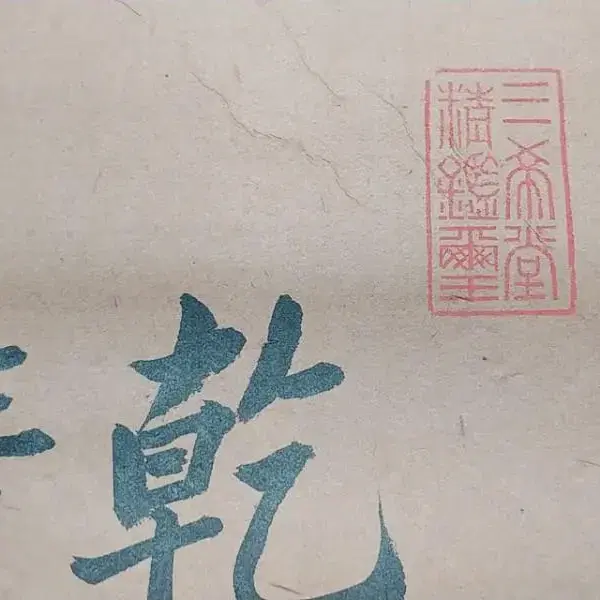 三希堂
精鑑璽
乾